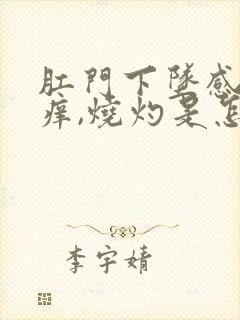 肛門下墜感
痒,燒灼是怎
李宇婧